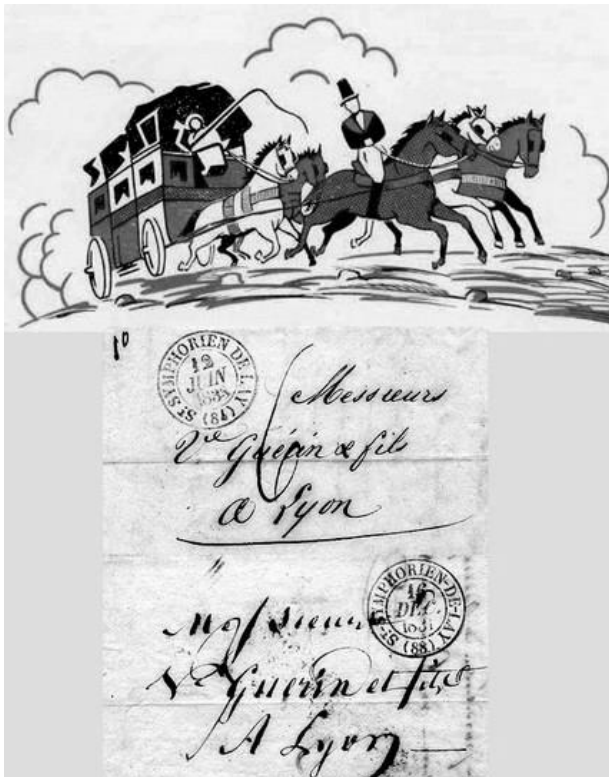 1º
ST SYMPHORIEN DE LAY (84)
12
JUIN
183
Messieurs
Ve Guérin & fils
a Lyon
ST SYMPHORIEN-DE-LAY (88)
16
DEC.
Messieurs
Ve Guerin et fils
A Lyon